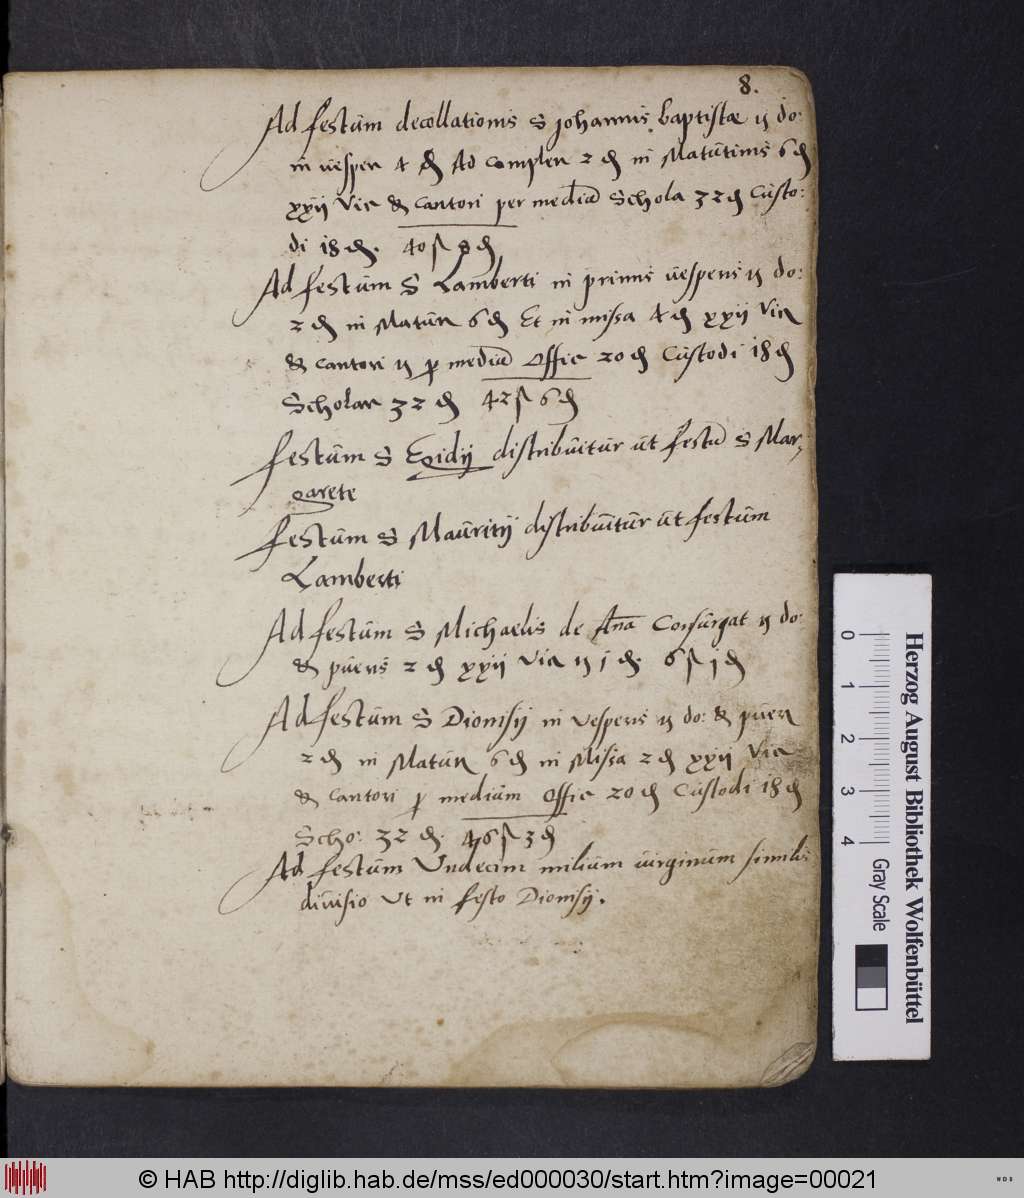 8.
Ad festum decollationis S Johannis baptistæ ij do:
in vesper 4 ₰ Ad comple 2 ₰ in Matutinis 6 ₰
xxij Vic & cantori per mediũ Schola 32 ₰ Custo:
di 18 ₰. 40 ſ 8 ₰
Ad festum S Lamberti in primis vesperis ij do:
2 ₰ in Matut 6 ₰ Et in missa 4 ₰ xxij Vic
& cantori ij ꝑ mediũ Offic 20 ₰ Custodi 18 ₰
Scholar 32 ₰ 42 ſ 6 ₰
Festum S Egidij distribuitur ut festũ S Mar,
garete
Festum S Mauritij distribuitur ut festum
Lamberti
Ad festum S Michaelis de Ana Consurgat ij do:
& pueris 2 ₰ xxij Vic ij j ₰. 6 ſ j ₰
Ad festum S Dionisij in Vesperis ij do: & puer
2 ₰ in Matut 6 ₰ in Missa 2 ₰ xxij Vic
& Cantori ꝑ medium Offic 20 ₰ Custodi 18 ₰
Scho: 32 ₰. 46 ſ 3 ₰
Ad festum Undecim milium virginum similis
divisio Ut in festo Dionisij.
Herzog August Bibliothek Wolfenbüttel
0 1 2 3 4 Gray Scale
© HAB http://diglib.hab.de/mss/ed000030/start.htm?image=00021